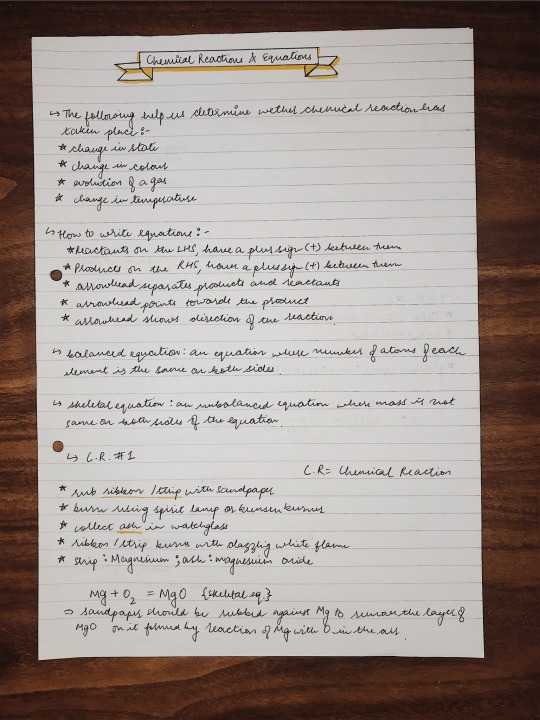 Chemical Reactions & Equations
↳ The following help us determine wether chemical reaction has
taken place :-
* change in state
* change in colour
* evolution of a gas
* change in temperature
↳ How to write equations :-
* Reactants on the LHS, have a plus sign (+) between them
* Products on the RHS, have a plus sign (+) between them
* arrowhead separates products and reactants
* arrowhead points towards the product
* arrowhead shows direction of the reaction.
↳ balanced equation : an equation whose number of atoms of each
element is the same on both sides.
↳ skeletal equation : an unbalanced equation where mass is not
same on both sides of the equation.
↳ C.R. #1
C.R = Chemical Reaction
* rub ribbon / strip with sandpaper
* burn using spirit lamp or bunsen burner
* collect ash in watchglass
* ribbon / strip burns with dazzling white flame
* strip : Magnesium ; ash : magnesium oxide
Mg + O₂ = MgO {skeletal eq.}
⇒ sandpaper should be rubbed against Mg to remove the layer of
MgO on it formed by reaction of Mg with O in the air.